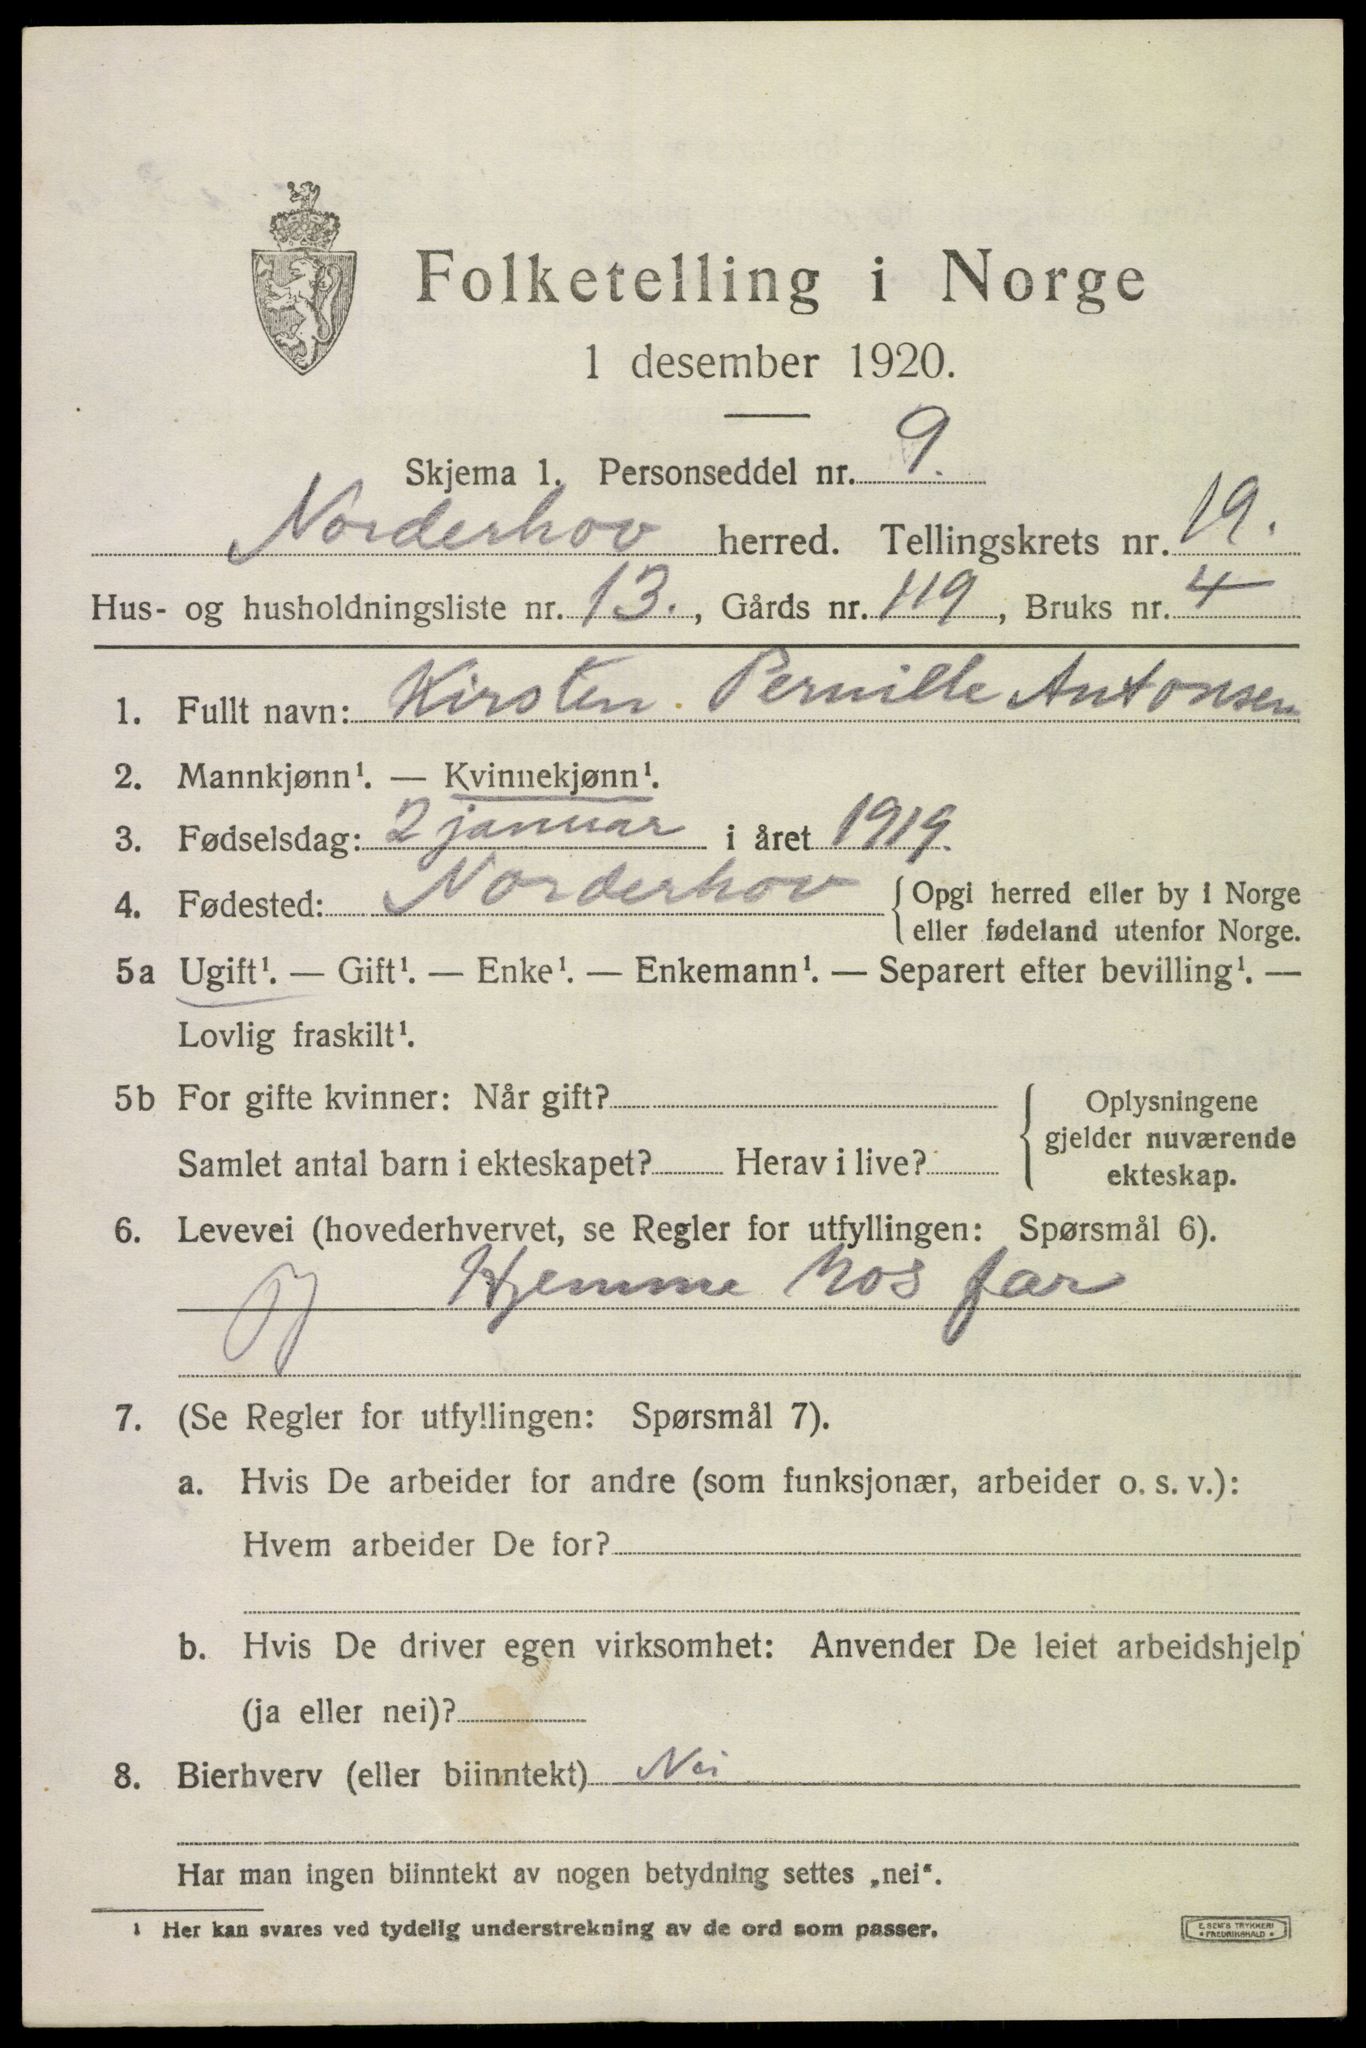 Folketelling i Norge
1 desember 1920.
Skjema 1. Personseddel nr. 9.
Norderhov herred. Tellingskrets nr. 19.
Hus- og husholdningsliste nr. 13., Gårds nr. 119, Bruks nr. 4
1. Fullt navn: Kirsten Pernille Antonsen
2. Mannkjønn¹. — Kvinnekjønn¹.
3. Fødselsdag: 2 januar i året 1919.
4. Fødested: Norderhov { Opgi herred eller by i Norge
eller fødeland utenfor Norge.
5a Ugift¹. — Gift¹. — Enke¹. — Enkemann¹. — Separert efter bevilling¹. —
Lovlig fraskilt¹.
5b For gifte kvinner: Når gift?
Samlet antal barn i ekteskapet? Herav i live?
{ Oplysningene
gjelder nuværende
ekteskap.
6. Levevei (hovederhvervet, se Regler for utfyllingen: Spørsmål 6).
Hjemme hos far
7. (Se Regler for utfyllingen: Spørsmål 7).
a. Hvis De arbeider for andre (som funksjonær, arbeider o. s. v.):
Hvem arbeider De for?
b. Hvis De driver egen virksomhet: Anvender De leiet arbeidshjelp
(ja eller nei)?
8. Bierhverv (eller biinntekt) Nei
Har man ingen biinntekt av nogen betydning settes „nei“.
¹ Her kan svares ved tydelig understrekning av de ord som passer.
E. SEM'S TRYKKERI
* FREDRIKSHALD *